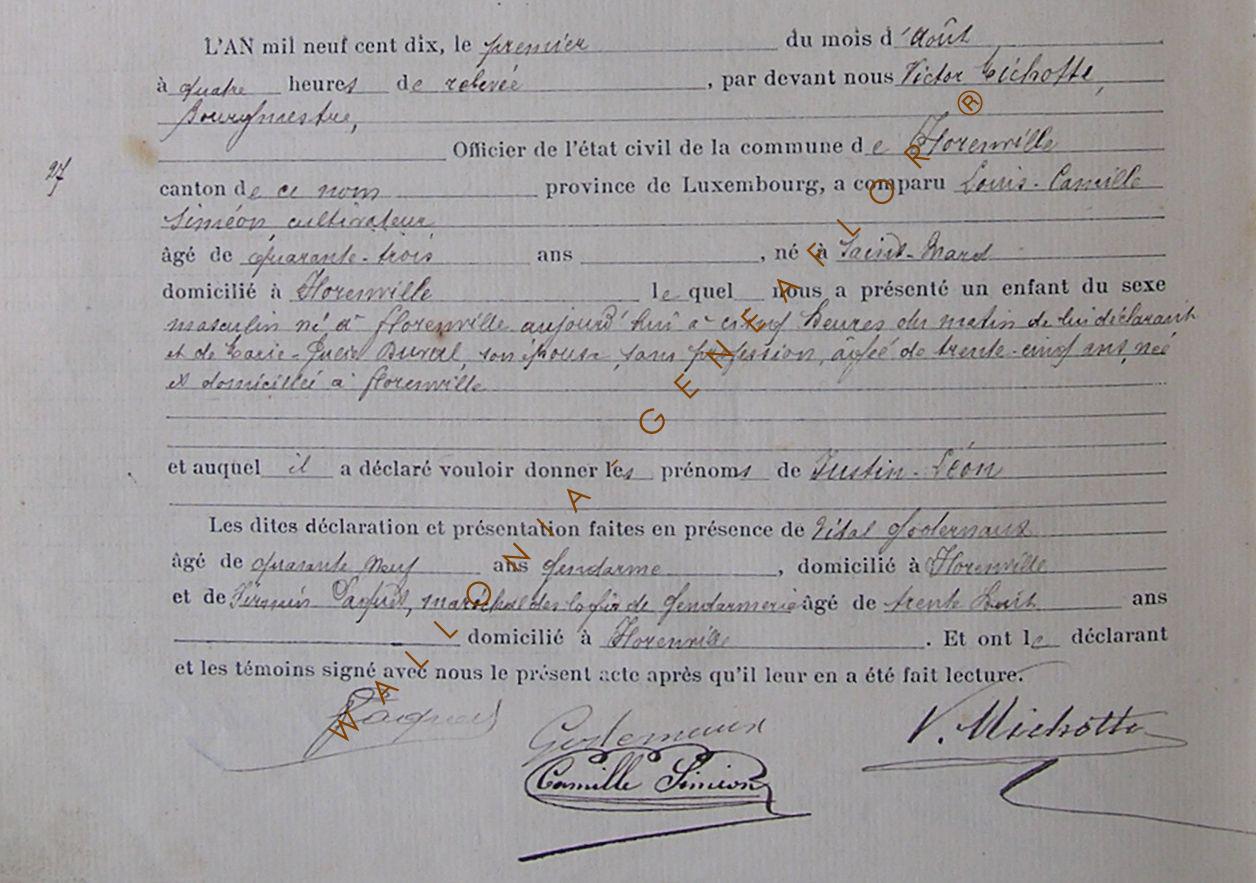 L'AN mil neuf cent dix, le premier du mois d'Août
à quatre heures de relevée, par devant nous Victor Michotte,
Bourgmestre,
Officier de l'état civil de la commune de Florenville
27
canton de ce nom province de Luxembourg, a comparu Louis-Camille
Siméon, cultivateur,
âgé de quarante-trois ans, né à Saint-Mard
domicilié à Florenville lequel nous a présenté un enfant du sexe
masculin né à Florenville aujourd'hui à cinq heures du matin de lui déclarant
et de Marie- son épouse, sans profession, âgée de trente-cinq ans, née
et domiciliée à Florenville
et auquel il a déclaré vouloir donner les prénoms de Justin-Léon
Les dites déclaration et présentation faites en présence de Vital Godernaux
âgé de quarante neuf ans gendarme, domicilié à Florenville
et de Jaques, maréchal des logis de gendarmerie âgé de trente huit ans
domicilié à Florenville. Et ont le déclarant
et les témoins signé avec nous le présent acte après qu'il leur en a été fait lecture.
Jaques
Godernaux
V. Michotte
Camille Siméon
WALLONIA - GENEAFLOR ®